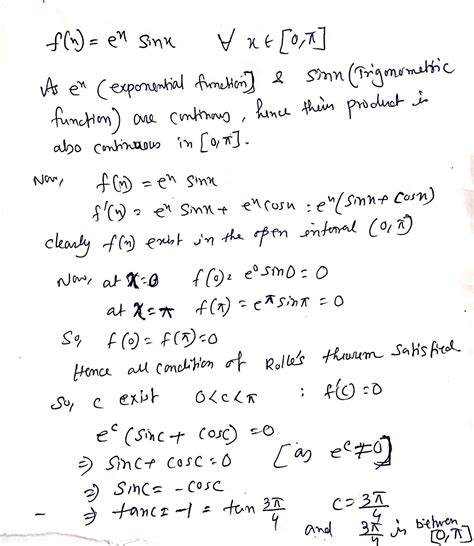 f(x) = eˣ sinx ∀ x ∈ [0,π]
As eˣ (exponential function] & sinx (Trigonometric
function) are continous, hence their product is
also continuous in [0,π].
Now, f(x) = eˣ sinx
f'(x) = eˣ sinx + eˣ cosx = eˣ(sinx + cosx)
clearly f(x) exist in the open interval (0,π)
Now, at x=0 f(0)= e⁰ sin0 = 0
at x=π f(π) = e^π sinπ = 0
So, f(0) = f(π)=0
Hence all condition of Rolle's theorem satisfied
So, c exist 0<c<π : f'(c) = 0
eᶜ (sinc + cosc) = 0
⇒ sinc + cosc = 0 [as eᶜ ≠ 0]
⇒ sinc = -cosc
⇒ tanc = -1 = tan 3π/4 c = 3π/4
and 3π/4 is between [0,π]